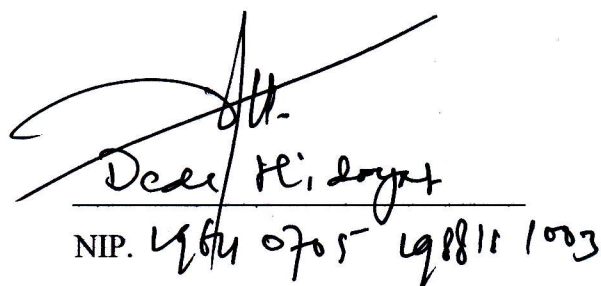 Dede Hidayat
NIP. 1964 0705 198811 1003